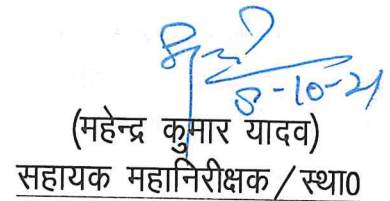 8-10-21
(महेन्द्र कुमार यादव)
सहायक महानिरीक्षक / स्था0